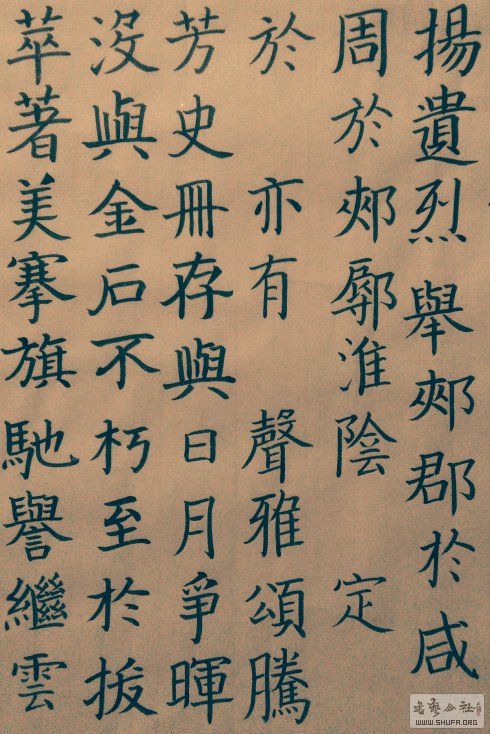 揚遺烈舉郟郡於咸
周於郟鄏淮陰 定
於 亦有 聲雅頌騰
芳史冊存與日月爭暉
沒與金石不朽至於拔
萃著美搴旗馳譽繼雲
书艺公社
WWW.SHUFA.ORG